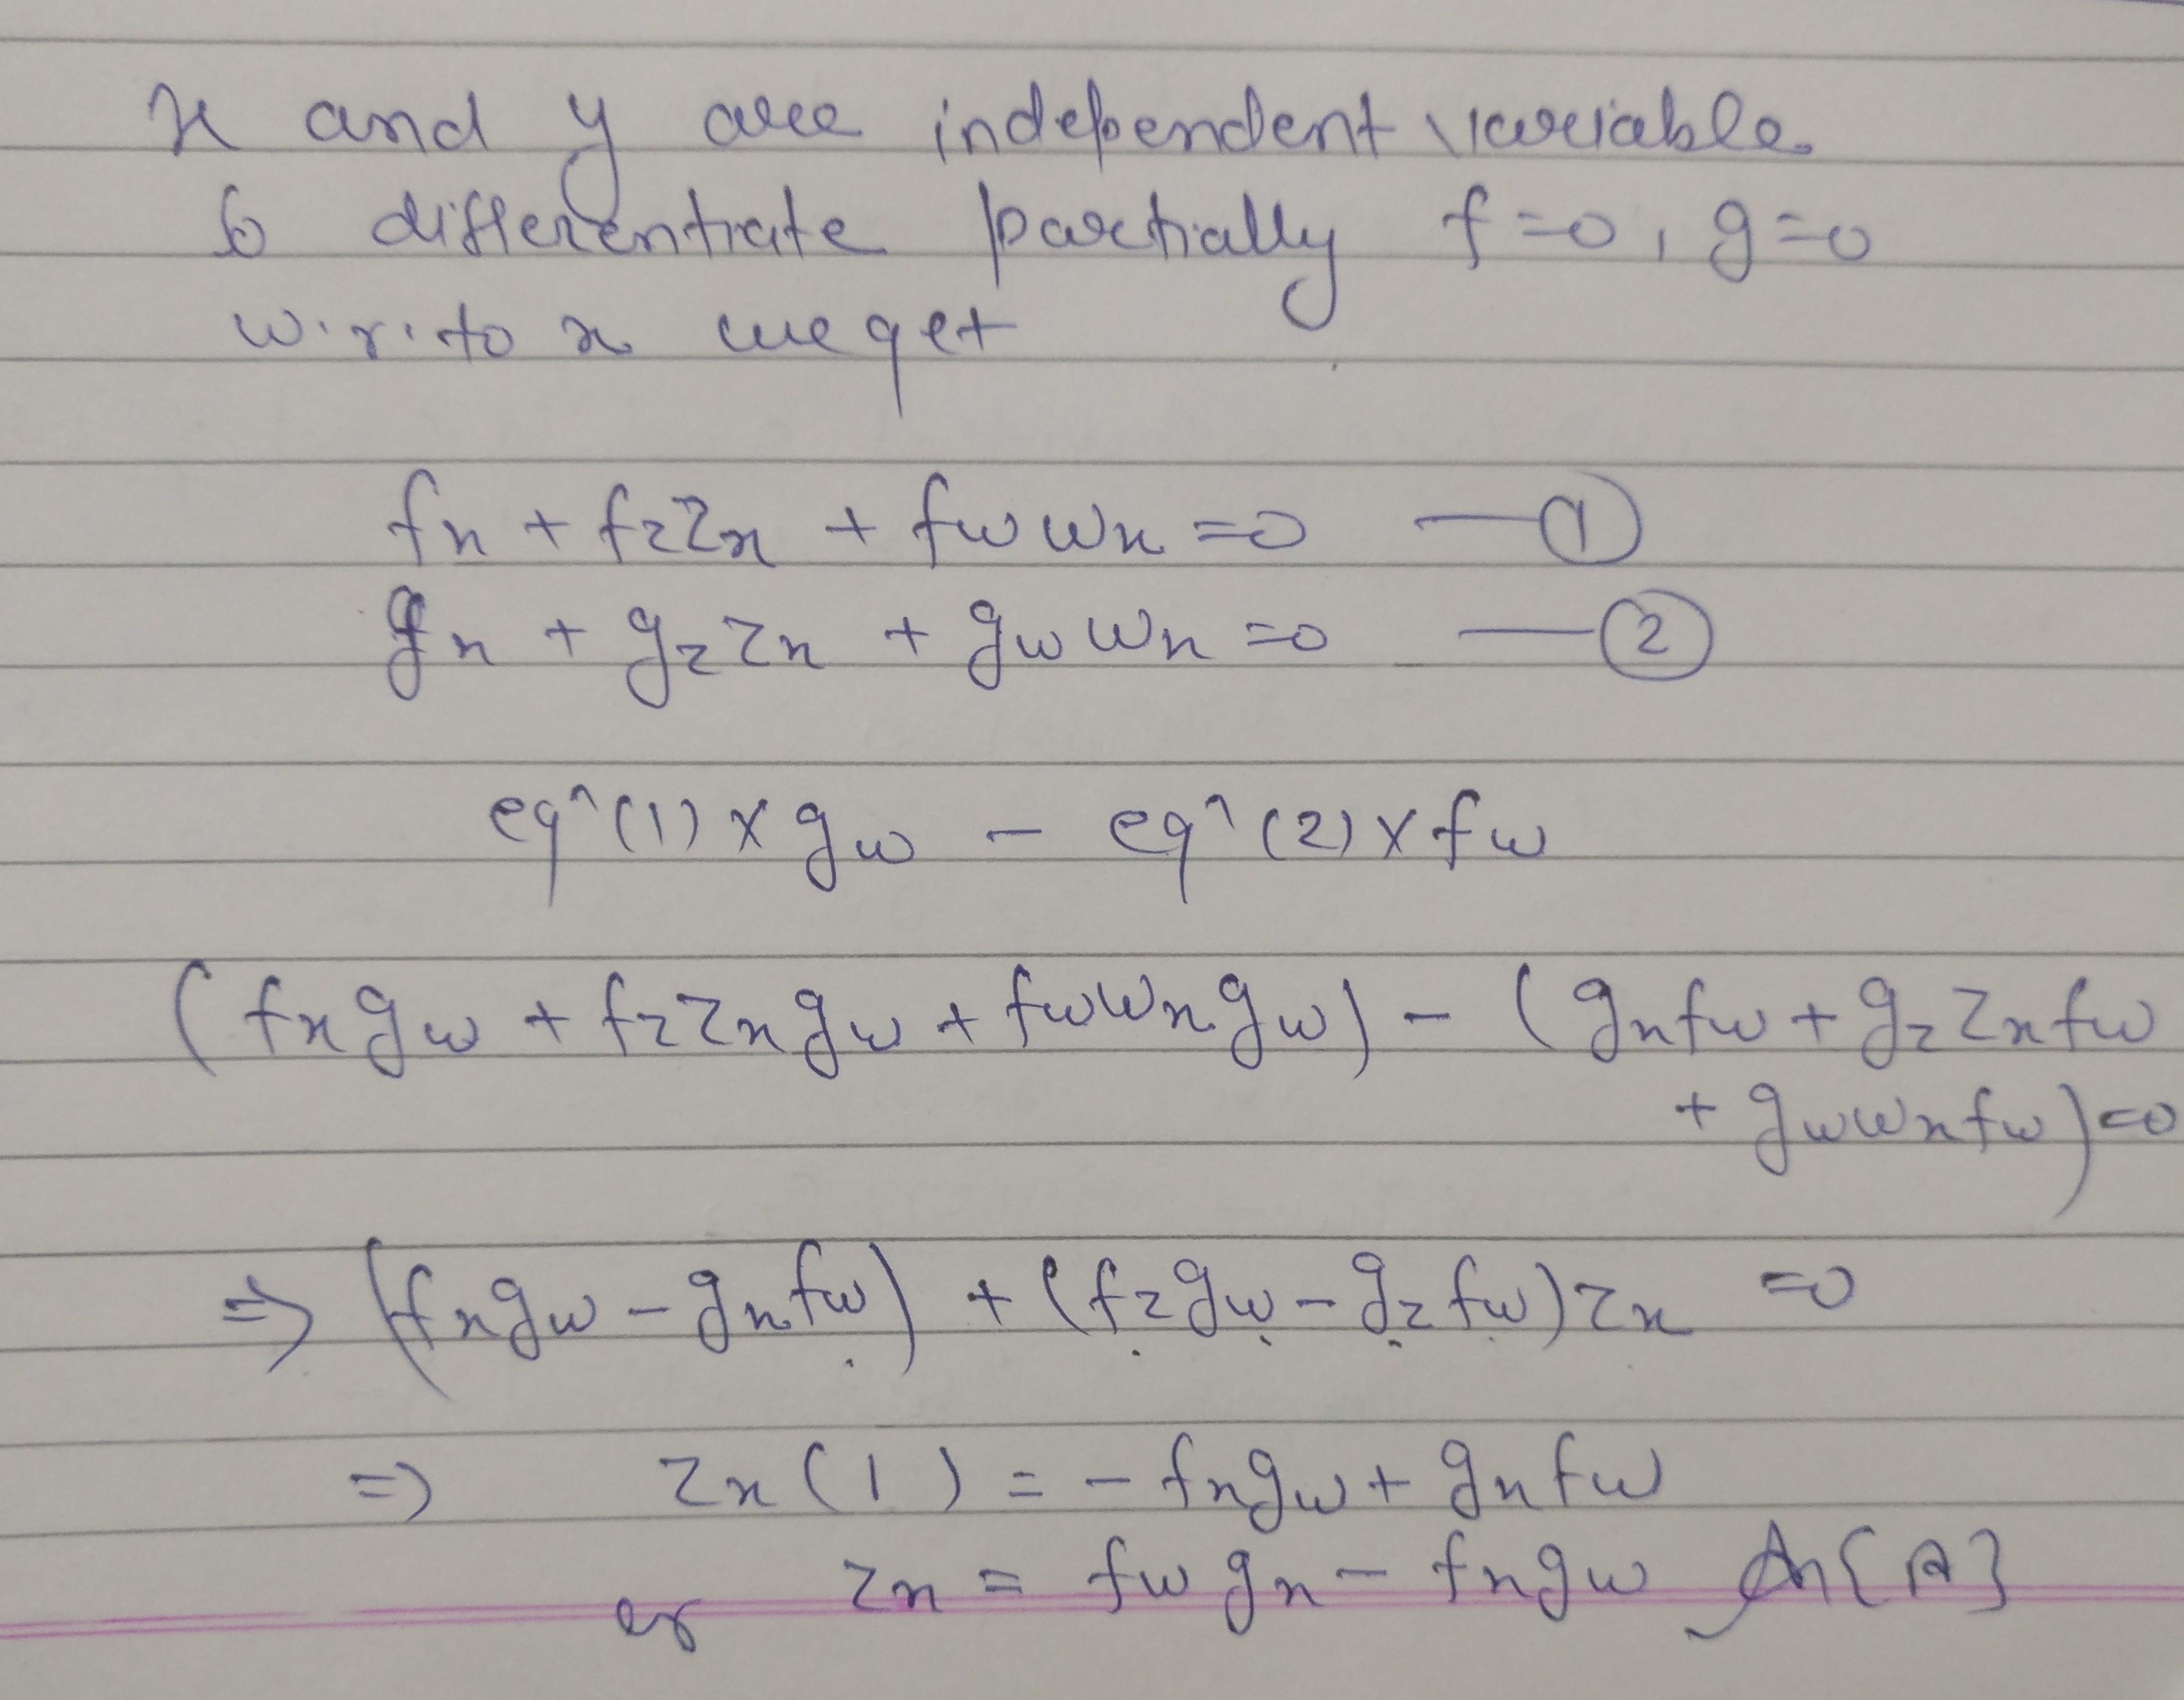 x and y are independent variable
so differentiate partially f=0, g=0
w.r.to x we get
fx + fz Zx + fw wx =0 —①
gx + gz Zx + gw wx =0 —②
eqⁿ(1) × gw – eqⁿ(2) × fw
(fx gw + fz Zx gw + fw wx gw) – (gx fw + gz Zx fw
+ gw wx fw) =0
⇒ (fx gw – gx fw) + (fz gw – gz fw) Zx =0
⇒ Zx (1) = – fx gw + gx fw
or Zx = fw gx – fx gw An{A}